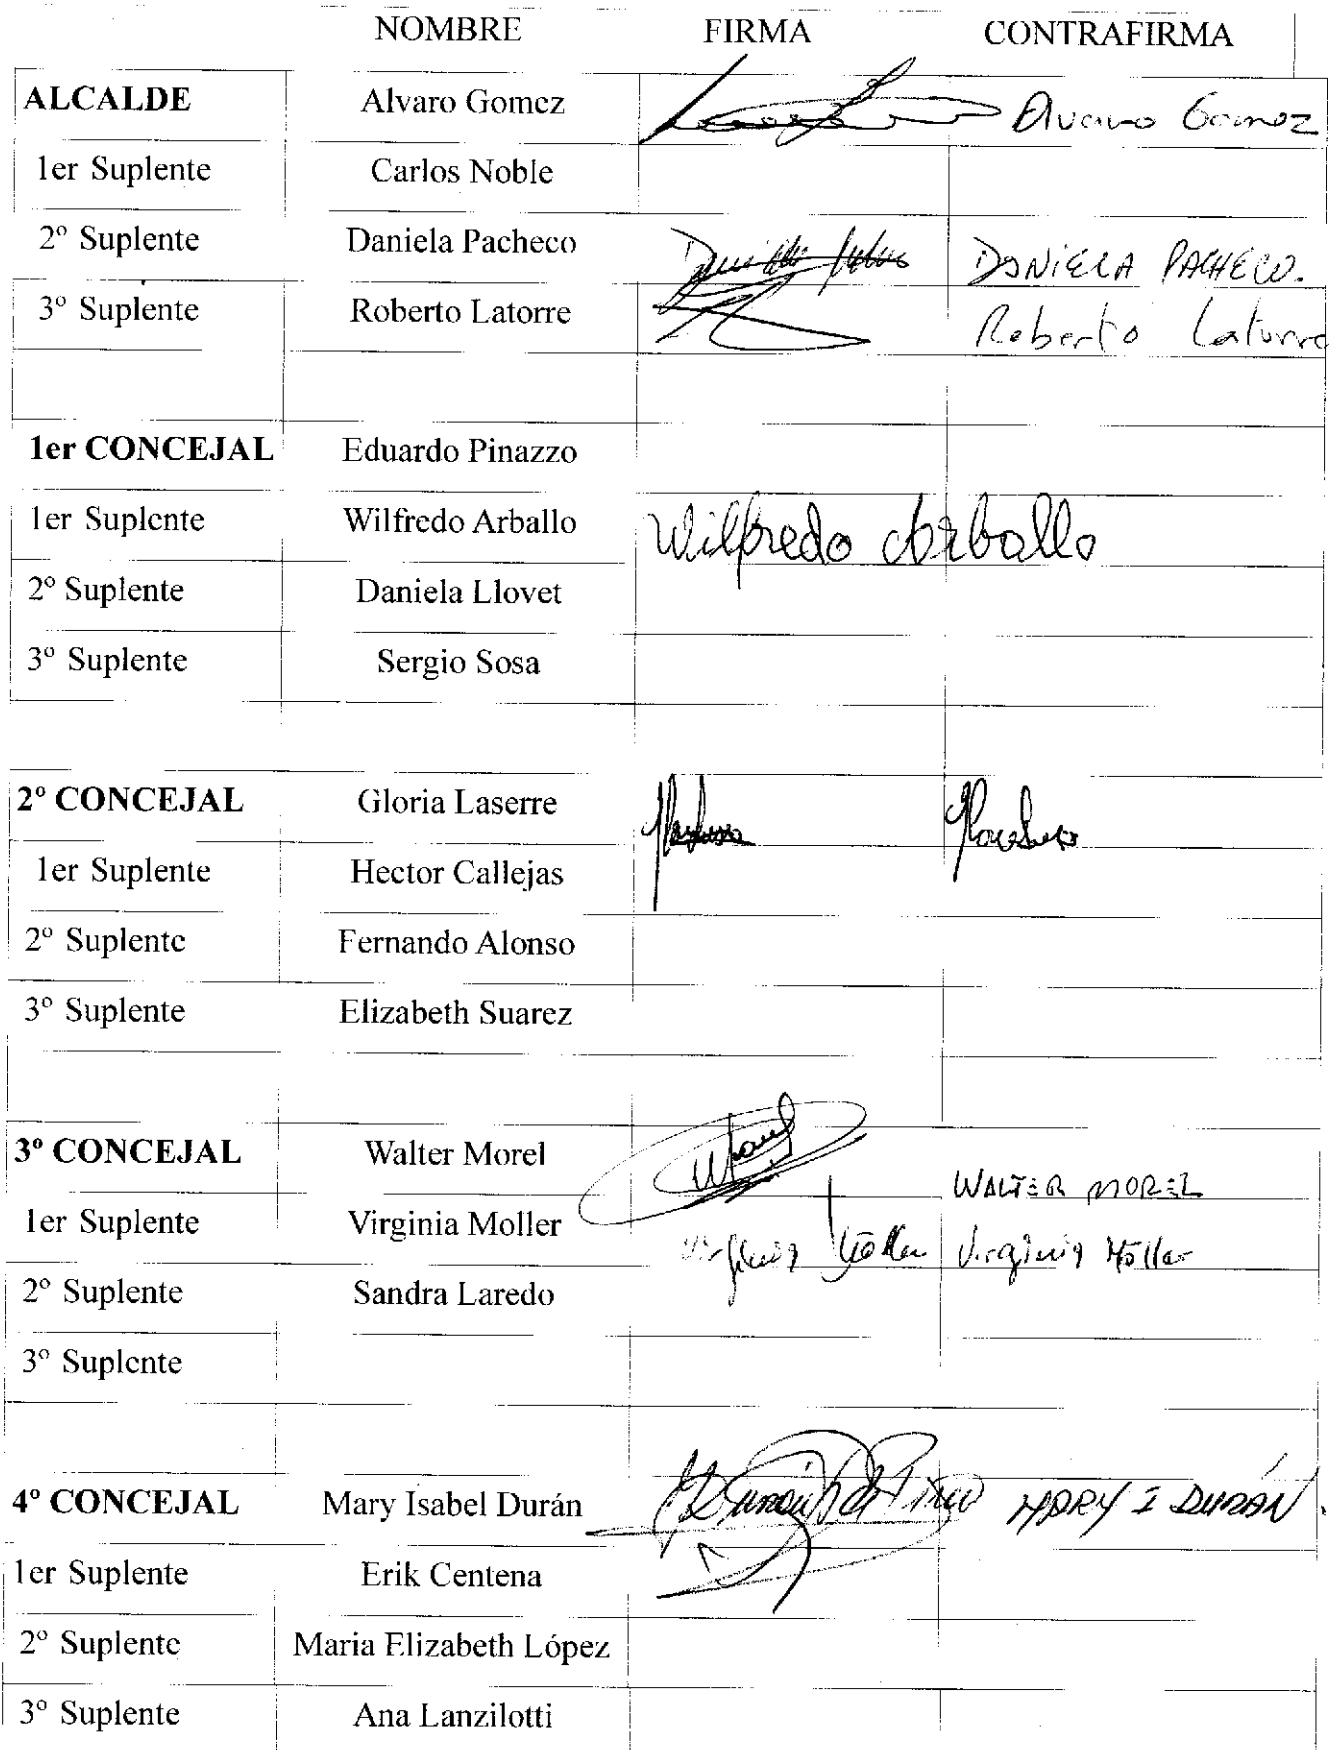 NOMBRE FIRMA CONTRAFIRMA
ALCALDE Alvaro Gomez Alvaro Gomez
1er Suplente Carlos Noble
2º Suplente Daniela Pacheco DANIELA PACHECO.
3º Suplente Roberto Latorre Roberto Latorre
1er CONCEJAL Eduardo Pinazzo
1er Suplente Wilfredo Arballo Wilfredo Arballo
2º Suplente Daniela Llovet
3º Suplente Sergio Sosa
2º CONCEJAL Gloria Laserre
1er Suplente Hector Callejas
2º Suplente Fernando Alonso
3º Suplente Elizabeth Suarez
3º CONCEJAL Walter Morel WALTER MOREL
1er Suplente Virginia Moller Virginia Möller Virginia Möller
2º Suplente Sandra Laredo
3º Suplente
4º CONCEJAL Mary Isabel Durán MARY I DURÁN.
1er Suplente Erik Centena
2º Suplente Maria Elizabeth López
3º Suplente Ana Lanzilotti